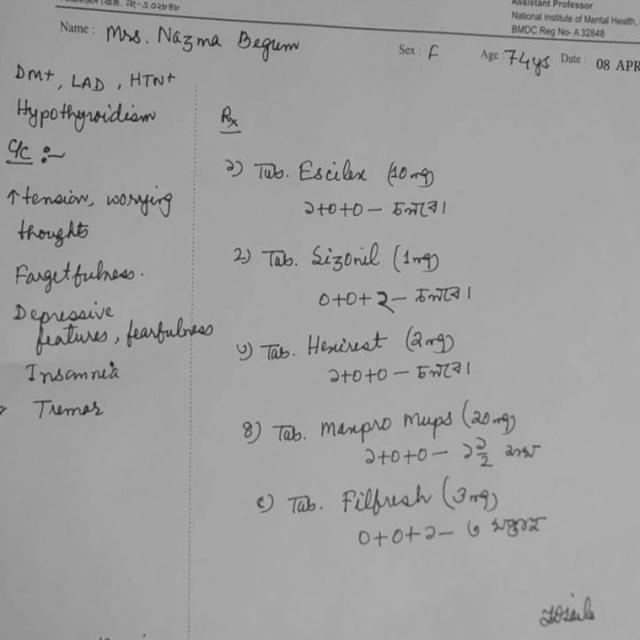 Assistant Professor
National Institute of Mental Health,
BMDC Reg No- A 32848
Name : Mrs. Nazma Begum Sex : F Age : 74ys Date : 08 APR
DM+, LAD, HTN+
Hypothyroidism
C/C :-
↑tension, worrying
thoughts
Fargetfulness.
Depressive
features, fearfulness
Insomnia
Tremor
Rx
১) Tab. Escilex (10mg)
১+০+০ – চলবে।
২) Tab. Sizonil (1mg)
০+০+১ – চলবে।
৩) Tab. Hexirest (2mg)
১+০+০ – চলবে।
৪) Tab. Maxpro Mups (20mg)
১+০+০ – ১ ১/২ মাস
৫) Tab. Filfresh (3mg)
০+০+১ – ৩ সপ্তাহ